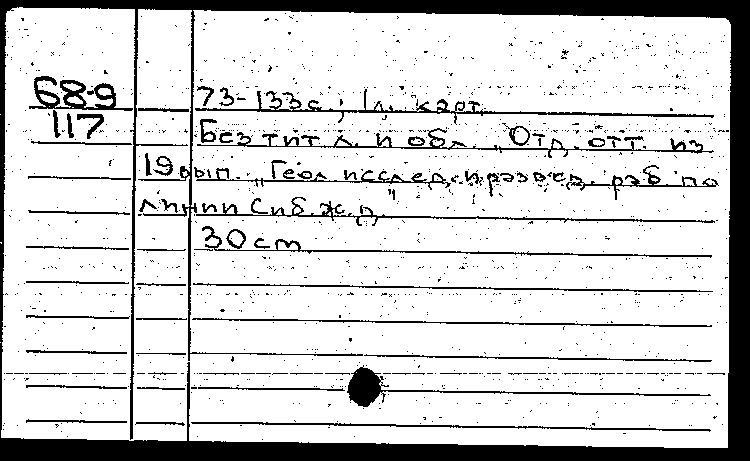 68-9 73-133с.; 1 л. карт.
117 Без тит. л. и обл. „Отд. отт. из
19 вып. „Геол. исслед. и развед. раб. по
линии Сиб. ж. д."
30 cm.